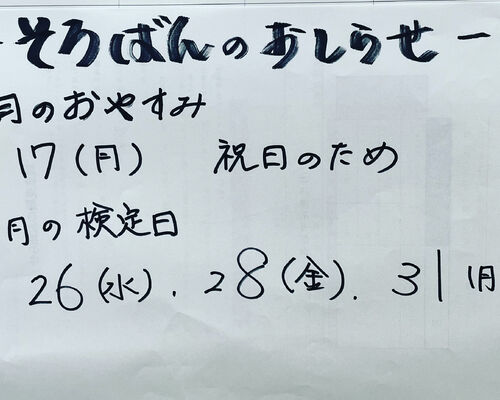 -そろばんのおしらせ-
月のおやすみ
17(月) 祝日のため
月の検定日
26(水). 28(金). 31(月